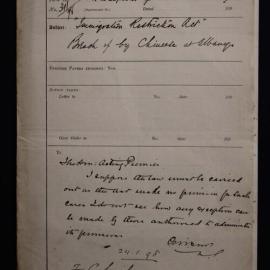 No.
Dated
Subject "Immigration Restriction Act"
Breach of by Chinese at Albany
Letter to
To
The Hon. Acting Premier
I suppose the law must be carried
out as the Act makes no provision for such
cases I do not see how any exception can
be made by those authorised to administer
the provisions
24.1.98